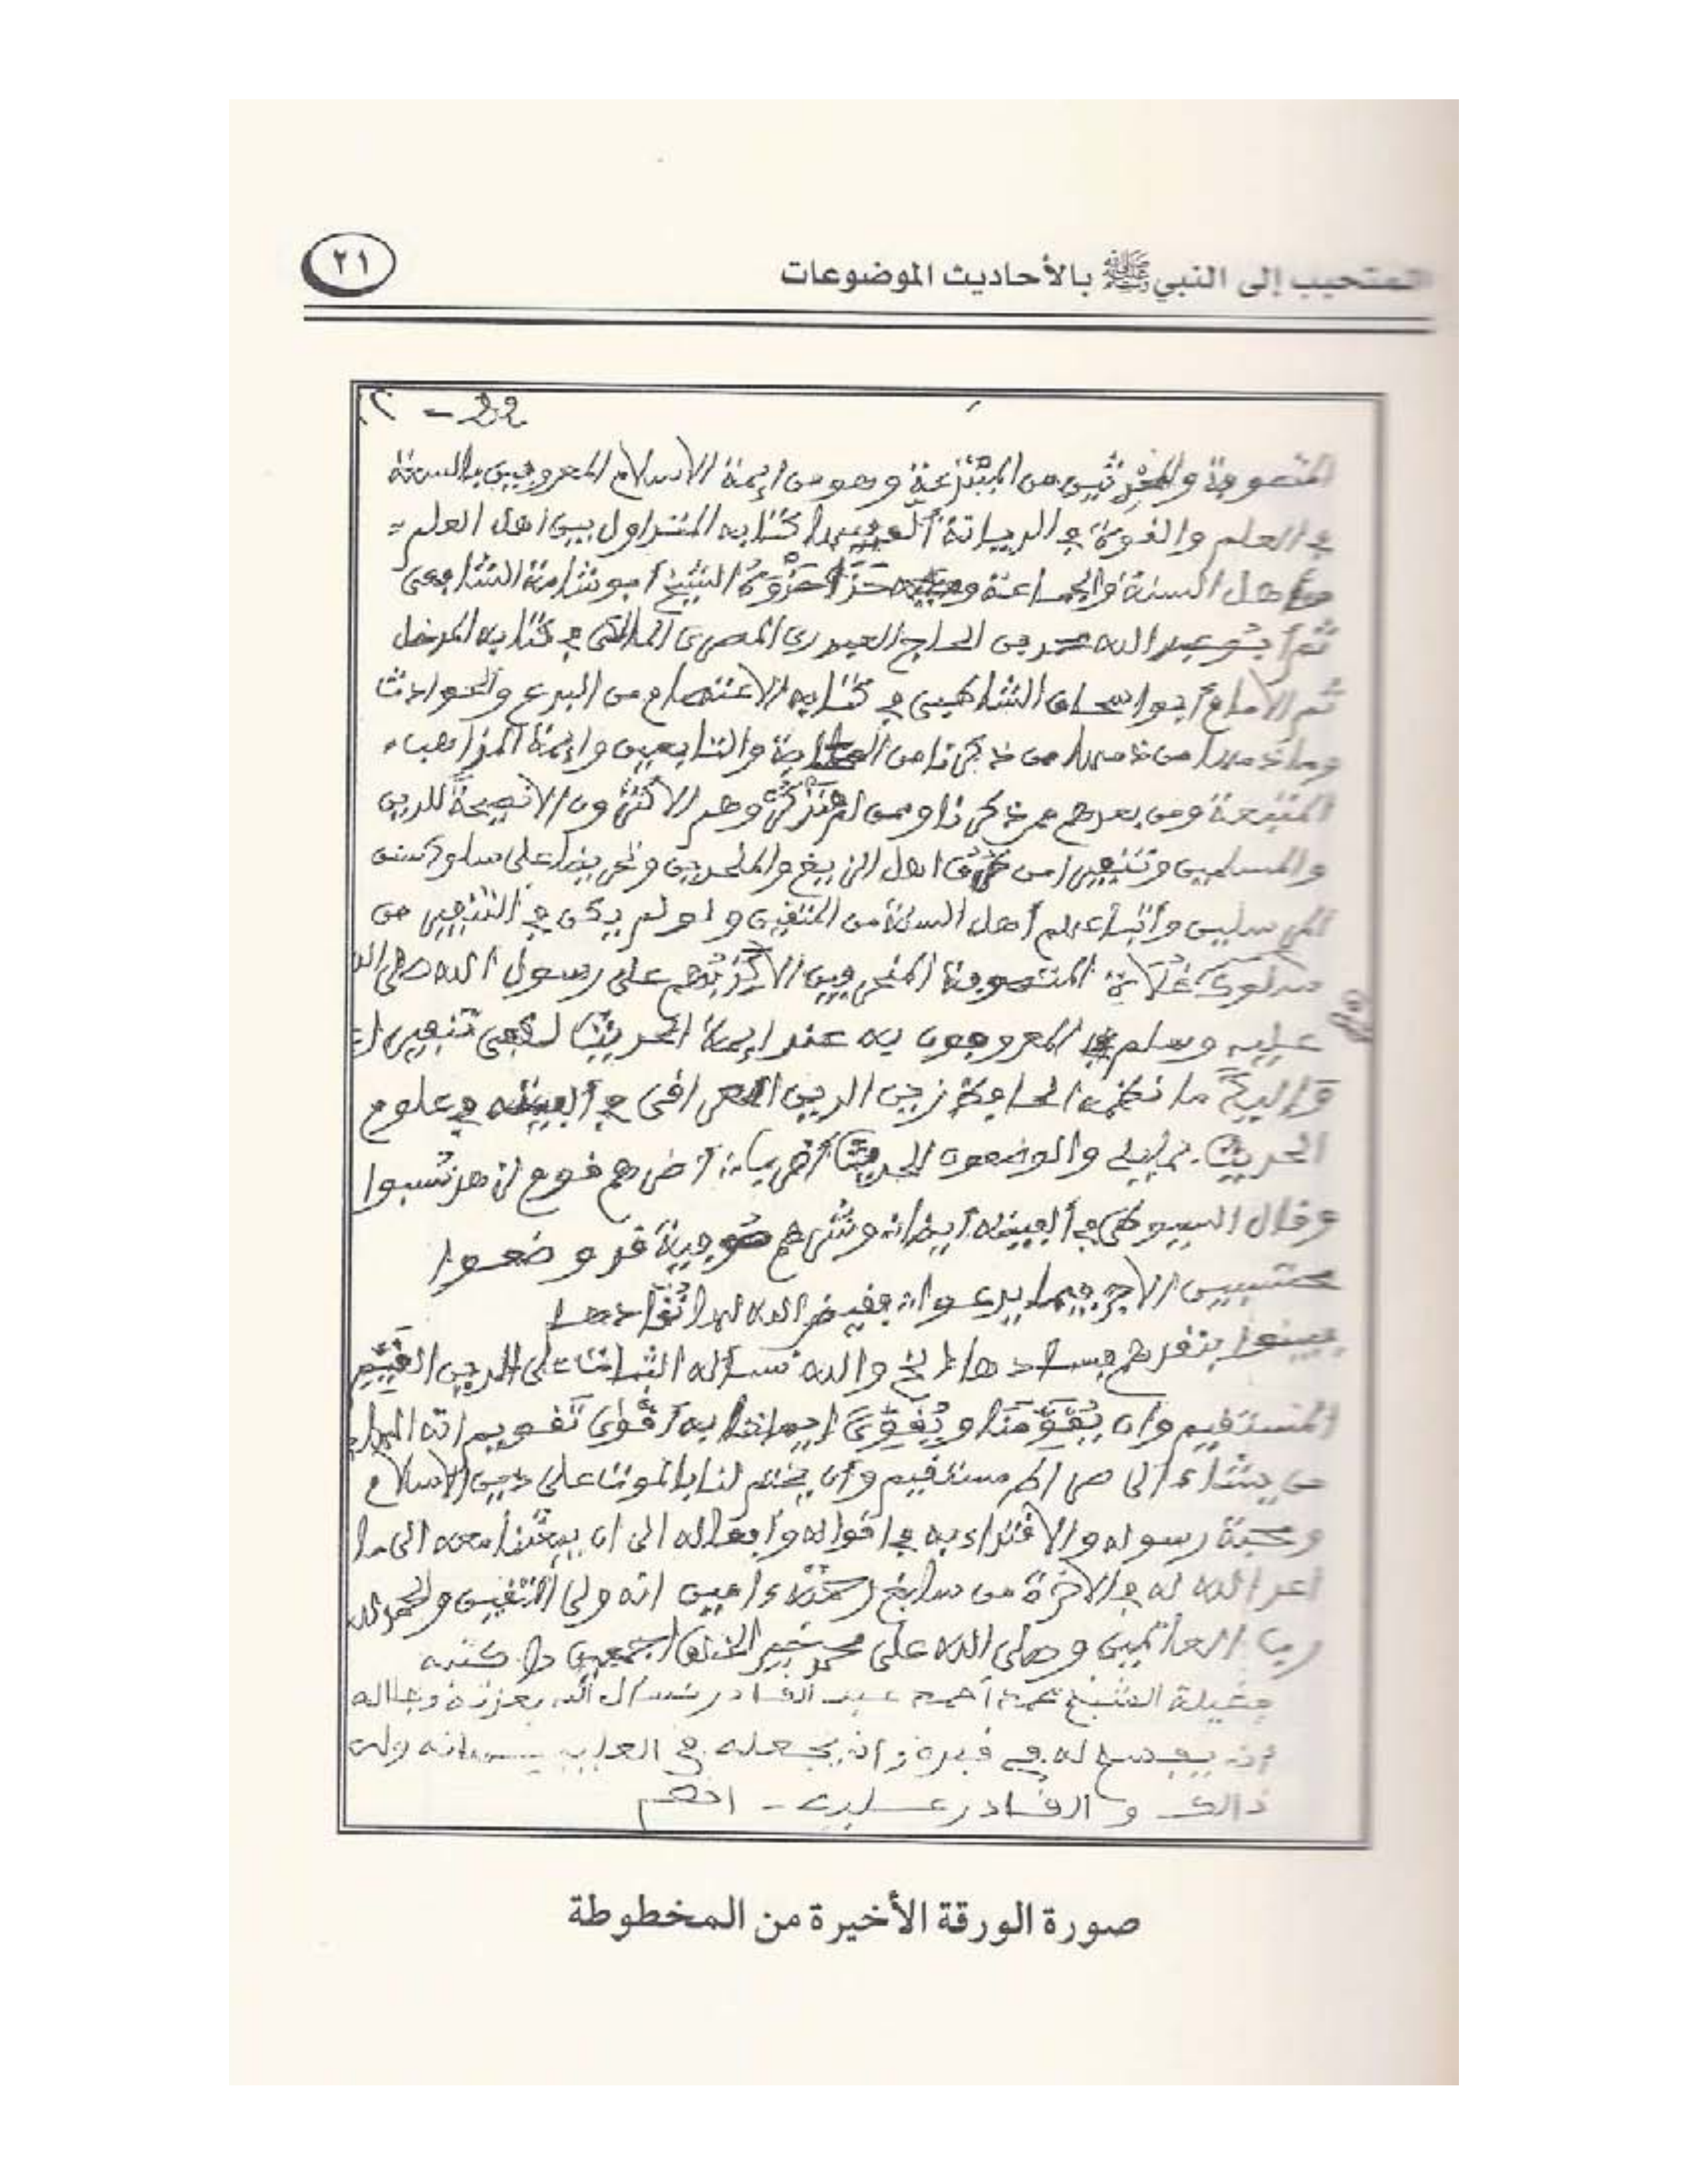 المتحبب إلى النبي ﷺ بالأحاديث الموضوعات
٢١
المتصوفة والمحدثين من المبتدعة وهو من ايمة الاسلام المعروفين بالسنة
في العلم والقوة في الديانة كتابه المتداول بين اهل العلم
أهل السنة والجماعة حَذَا حَذْوَهُ الشيخ أبو شامة الشافعي
ثم أبو عبد الله محمد بن الحاج العبدري المصري المالكي في كتابه المدخل
ثم الامام أبو اسحاق الشاطبي في كتابه الاعتصام من البدع والحوادث
وما ذمها من ذمها من ذكرنا من الصحابة والتابعين وايمة المذاهب
المتبعة ومن بعدهم ممن ذكرنا وممن لم نذكر وهم الاكثرون الا نصيحةً للدين
والمسلمين وتنفيرا من طُرُق اهل الزيغ والملحدين وتحريضا على سلوك سنن
المرسلين وأتباعهم أهل السنة من المتقين ولو لم يكن في التنفير من
سلوك غلاة المتصوفة المنحرفين الا كذبهم على رسول الله صلى الله
عليه وسلم المعروفون به عند ايمة الحديث لكفى تنفيرا
وإليك ما نظمه الحافظ زين الدين العراقي في ألفيته في علوم
الحديث والواضعون للحديث أضرب أضرهم قوم لزهد نسبوا
وقال السيوطي في ألفيته أيضا وشرهم صوفية قد وضعوا
محتسبين الاجر فيما يدعوا فقيض الله لها نُقَّادها
فبينوا بنقدهم فسادها الخ والله نسأله الثبات على الدين القَيِّم
المستقيم وان يُقَوِّمَنَا ويُقَوِّيَ ايماننا به أَقْوَى تَقويم انه الهادي
من يشاء الى صراط مستقيم وأن يختم لنا بالموت على دين الاسلام
ومحبة رسوله والاقتداء به في اقواله وأفعاله الى ان يبعثنا معه الى ما
اعد الله له في الاخرة من سابغ رحمته ءامين انه ولي المتقين والحمد لله
رب العالمين وصلى الله على محمد خير الخلق اجمعين كتبه
فضيلة الشيخ محمد أحمد عبد القادر نسأل الله بعزته وجلاله
أن يفسح له في قبره وان يجعله في انه ولي
ذالك والقادر عليه - اهـ
صورة الورقة الأخيرة من المخطوطة